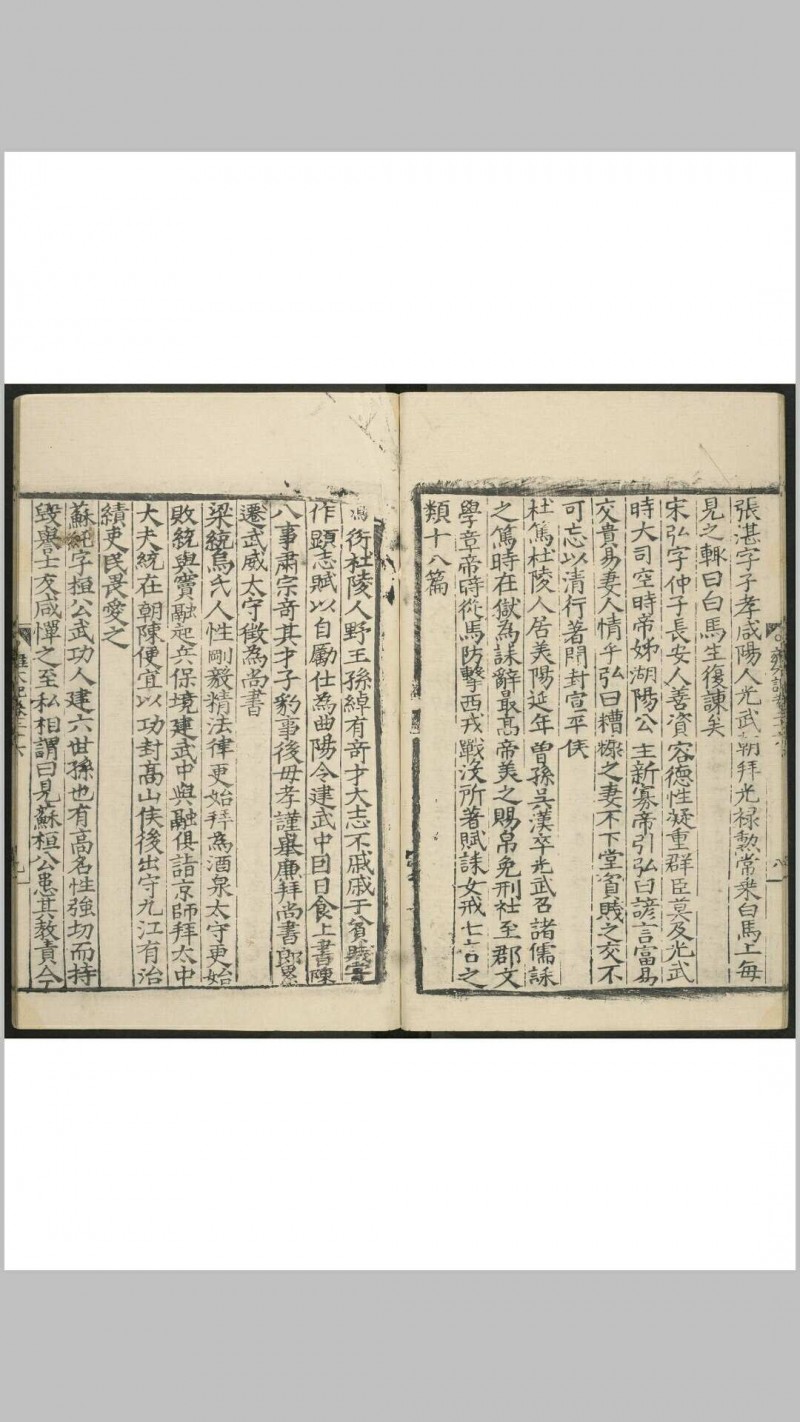 張湛字子孝咸陽人光武朝拜光禄勲常乘白馬上每
見之輙曰白馬生復諫矣
宋弘字仲子長安人善資容德性凝重群臣莫及光武
時大司空時帝姊湖陽公主新寡帝引弘曰諺言富易
交貴易妻人情乎弘曰糟糠之妻不下堂貧賤之交不
可忘以清行著聞封宣平侯
杜篤杜陵人居美陽延年曾孫吴漢卒光武召諸儒誄
之篤時在獄為誄辭最高帝美之賜帛免刑社至郡文
學章帝時從馬防擊西戎戰没所著賦誄女戒七言之
類十八篇
馮衍杜陵人野王孫綽有奇才大志不戚戚于貧賤
作顯志賦以自勵仕為曲陽令建武中因日食上書陳
八事肅宗奇其才子豹事後母孝謹舉廉拜尚書郎
遷武威太守徵為尚書
梁統烏氏人性剛毅精法律更始拜為酒泉太守更始
敗統與竇融起兵保境建武中與融俱詣京師拜太中
大夫統在朝陳便宜以功封高山侯後出守九江有治
績吏民畏愛之
蘇純字桓公武功人建六世孫也有高名性強切而持
毀譽士友咸憚之至私相謂曰見蘇桓公患其教責今